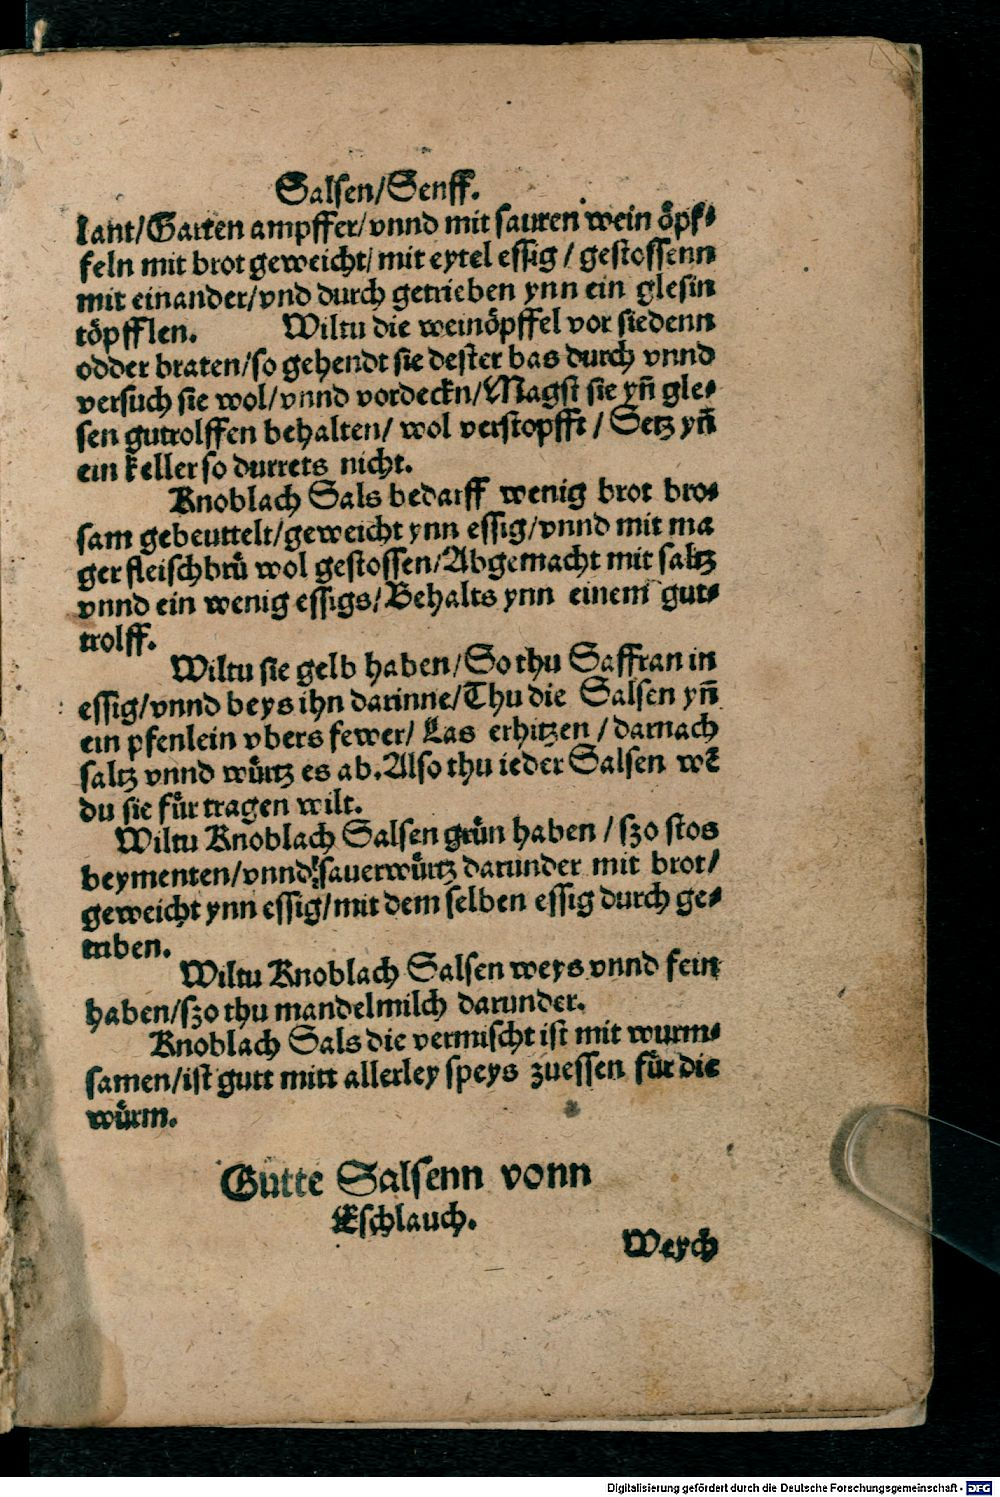 Salsen/Senff.
lant/Garten ampffer/vnnd mit sauren wein öpf⸗
feln mit brot geweicht/ mit eytel essig / gestossenn
mit einander/vnd durch getrieben ynn ein glesin
töpfflen. Wiltu die weinöpffel vor siedenn
odder braten/so gehendt sie dester bas durch vnnd
versuch sie wol/vnnd vordeckn/Magst sie yn̄ gle⸗
sen gutrolffen behalten/ wol verstopfft / Setz yn̄
ein keller so durrets nicht.
Knoblach Sals bedarff wenig brot bro⸗
sam gebeuttelt/geweicht ynn essig/vnnd mit ma
ger fleischbrü wol gestossen/Abgemacht mit saltz
vnnd ein wenig essigs/Behalts ynn einem gut⸗
trolff.
Wiltu sie gelb haben/So thu Saffran in
essig/vnnd beys ihn darinne/Thu die Salsen yn̄
ein pfenlein vbers fewer/ Las erhitzen / darnach
saltz vnnd würtz es ab.Also thu ieder Salsen wē
du sie für tragen wilt.
Wiltu Knoblach Salsen grün haben / szo stos
beymenten/vnnd sauerwürtz darunder mit brot/
geweicht ynn essig/mit dem selben essig durch ge⸗
triben.
Wiltu Knoblach Salsen weys vnnd fein
haben/szo thu mandelmilch darunder.
Knoblach Sals die vermischt ist mit wurm⸗
samen/ist gutt mitt allerley speys zuessen für die
würm.
Gutte Salsenn vonn
Eschlauch.
Weych
Digitalisierung gefördert durch die Deutsche Forschungsgemeinschaft - DFG